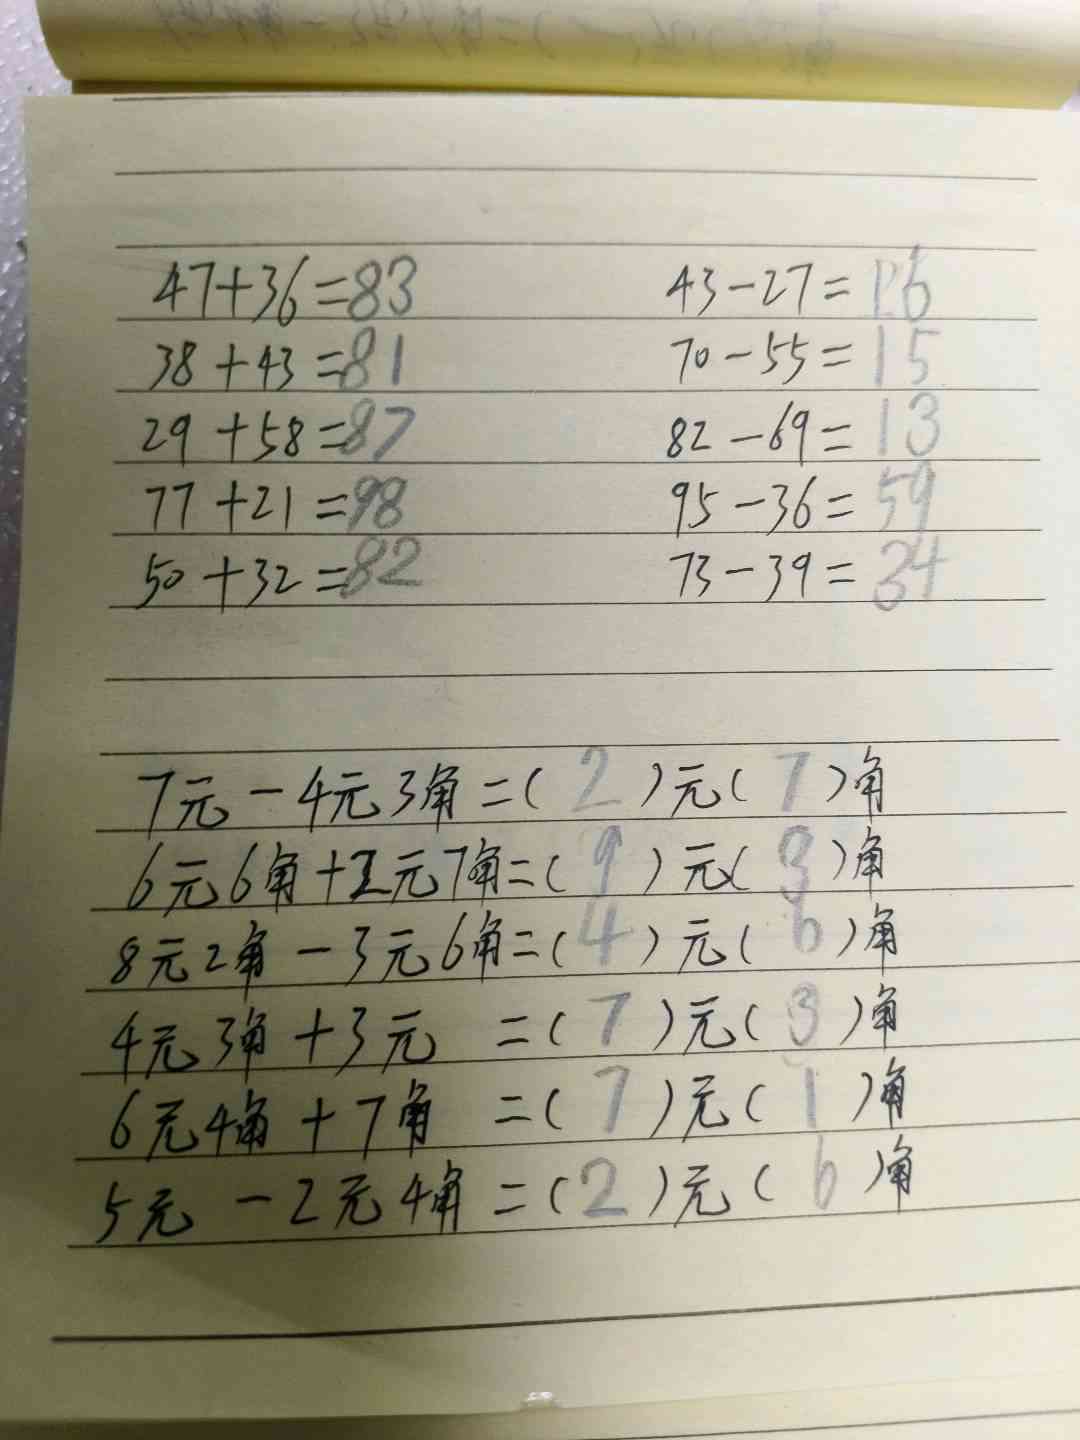 47+36=83 43-27=16
38+43=81 70-55=15
29+58=87 82-69=13
77+21=98 95-36=59
50+32=82 73-39=34
7元-4元3角=(2)元(7)角
6元6角+2元7角=(9)元(3)角
8元2角-3元6角=(4)元(6)角
4元3角+3元=(7)元(3)角
6元4角+7角=(7)元(1)角
5元-2元4角=(2)元(6)角